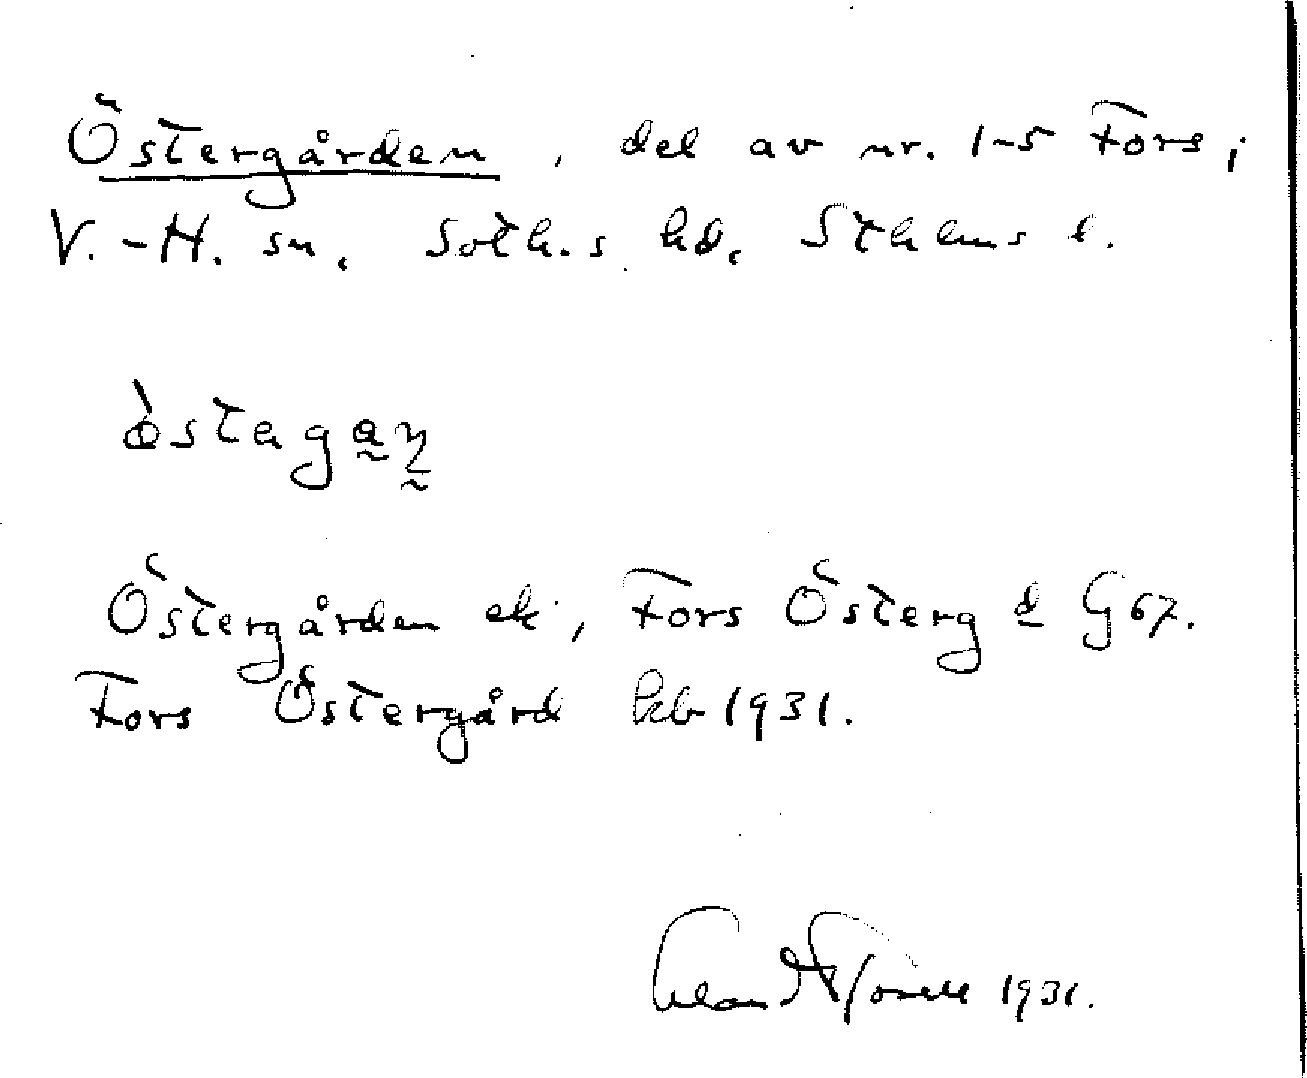 Östergården, del av nr. 1-5 Fors,
V.-H. sn. Soth.s hd. Sthlms l.
Östergården ek, Fors Österg d G 67.
Fors Östergård kb 1931.
1931.